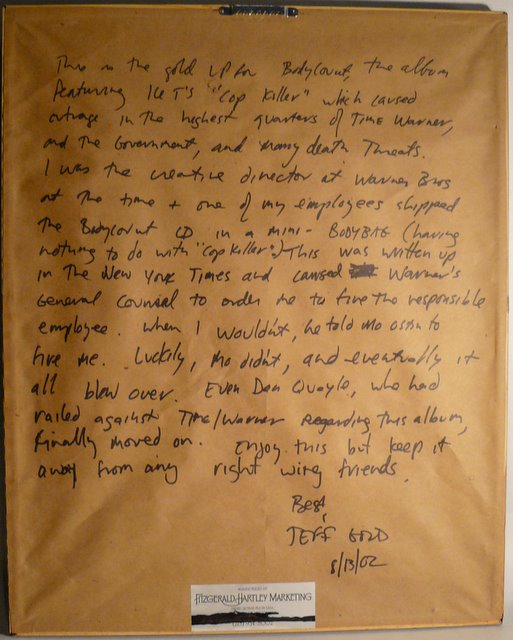 This is the gold LP for Bodycount, the album
featuring Ice T's "Cop Killer" which caused
outrage in the highest quarters of Time Warner,
and the Government, and many death threats.
I was the creative director at Warner Bros
at the time + one of my employees shipped
the Bodycount CD in a mini-BODYBAG (having
nothing to do with "Cop Killer".) This was written up
in The New York Times and caused Warner's
General Counsel to order me to fire the responsible
employee. When I wouldn't, he told Mo Ostin to
fire me. Luckily, Mo didn't, and eventually it
all blew over. Even Dan Quayle, who had
railed against Time/Warner regarding this album,
finally moved on. Enjoy this but keep it
away from any right wing friends.
Best,
JEFF GOLD
8/13/02
FITZGERALD-HARTLEY MARKETING